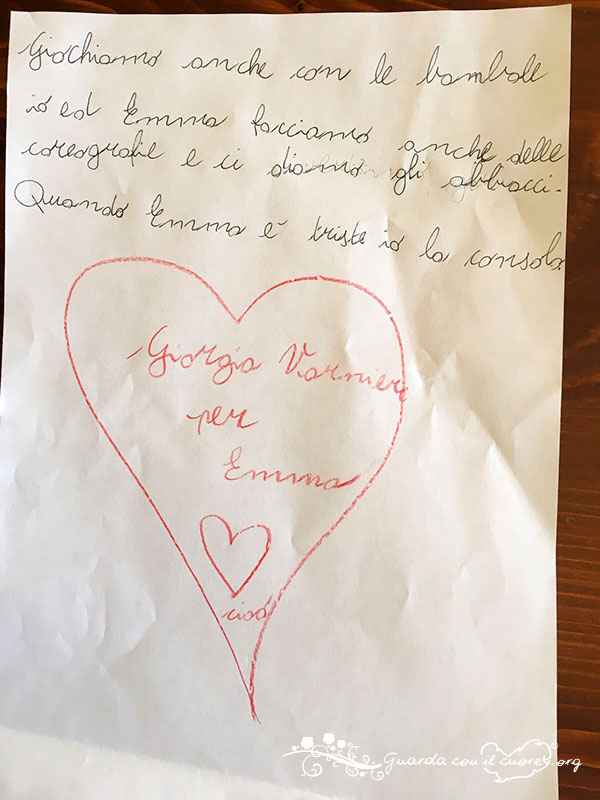 Giochiamo anche con le bambole
io ed Emma facciamo anche delle
coreografie e ci diamo gli abbracci.
Quando Emma è triste io la consola
Giorgia Varnieri
per
Emma
ciao
Guarda con il cuore.org